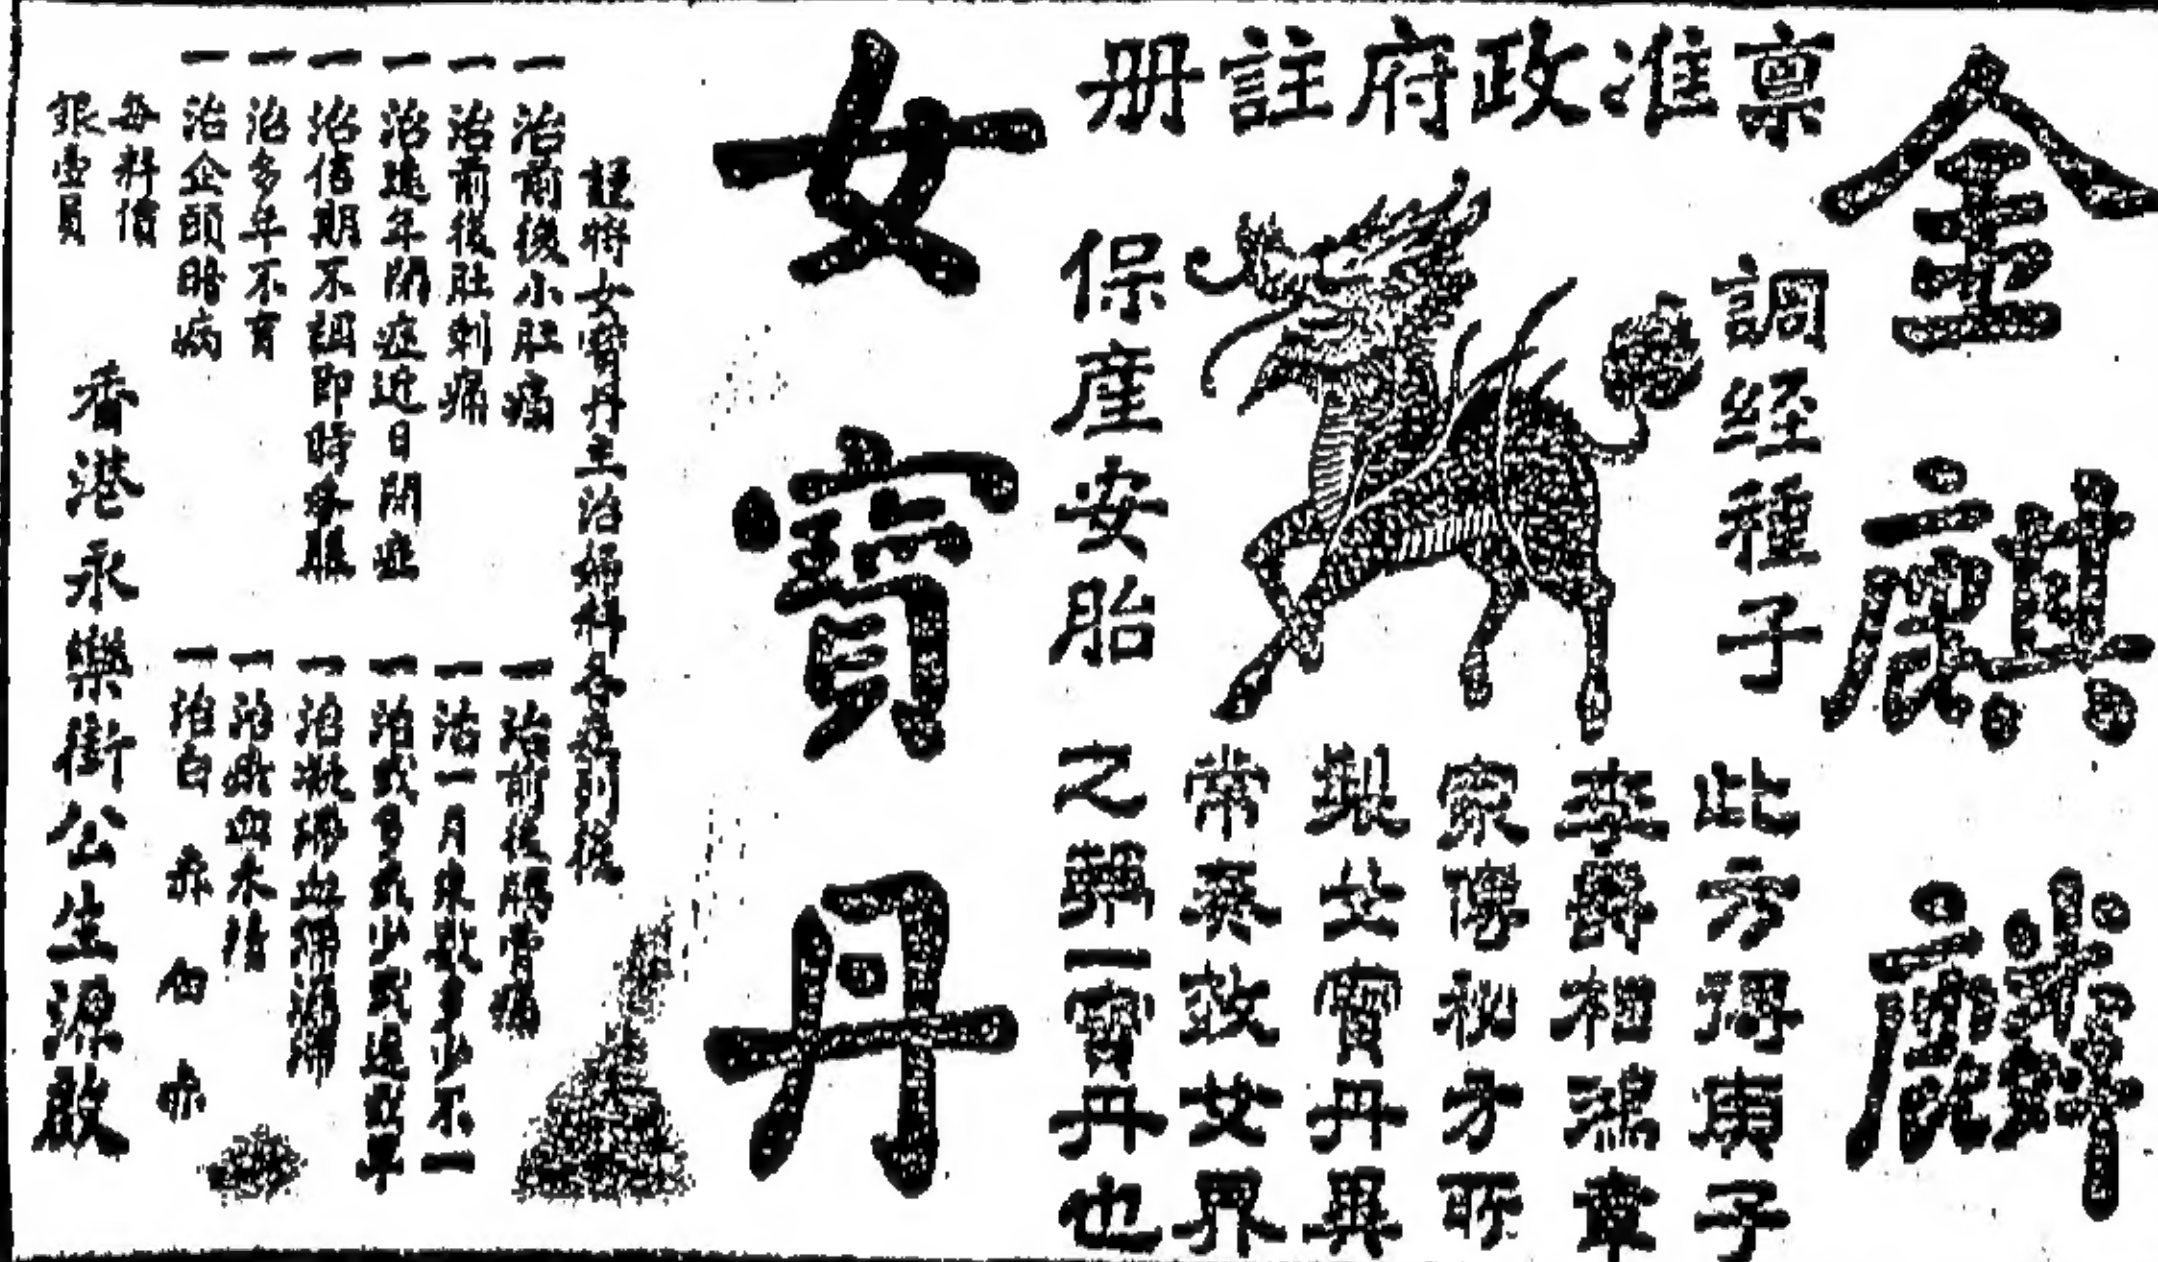 金麒麟
稟准政府註册
調経種子
保産安胎
此方得庚子
李爵相鴻章
家傳秘方所
製女寳丹異
常奏效女界
之獨一寳丹也
女寳丹
謹將女寳丹主治婦科各症列後
一治前後小肚痛
一治前後肚刺痛
一治遠年閉症近日閉症
一治信期不調即時
一治多年不育
一治企頭暗病
一治前後腸骨痛
一治一月來數次多少不一
一治或多或少或遲或早
一治凝瘀血
一治瘀血未清
一治白赤白赤
每料價
銀壹員
香港永樂街公生源啟